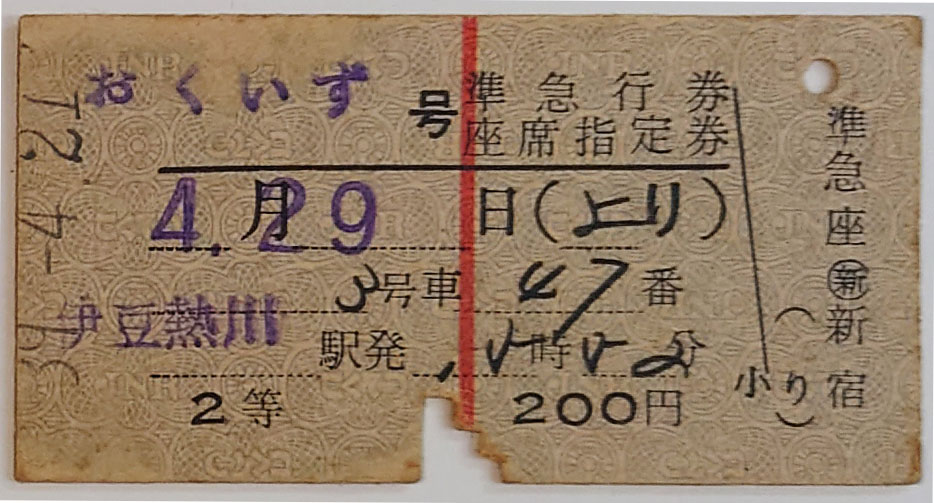 おくいず号
準急行券
座席指定券
4月29日(上り)
3号車47番
伊豆熱川駅発15時52分
2等 200円
小
(り)
準急座㊟新宿